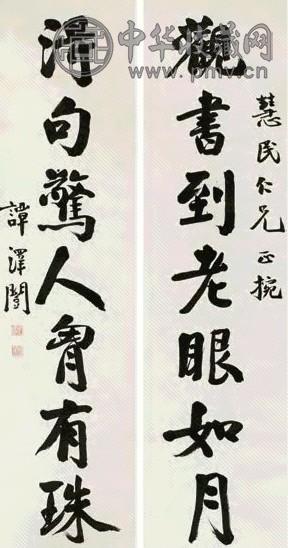 中华收藏网
www.pmv.cn
慧民仁兄正
觀書到老眼如月
得句驚人胷有珠
譚澤闓